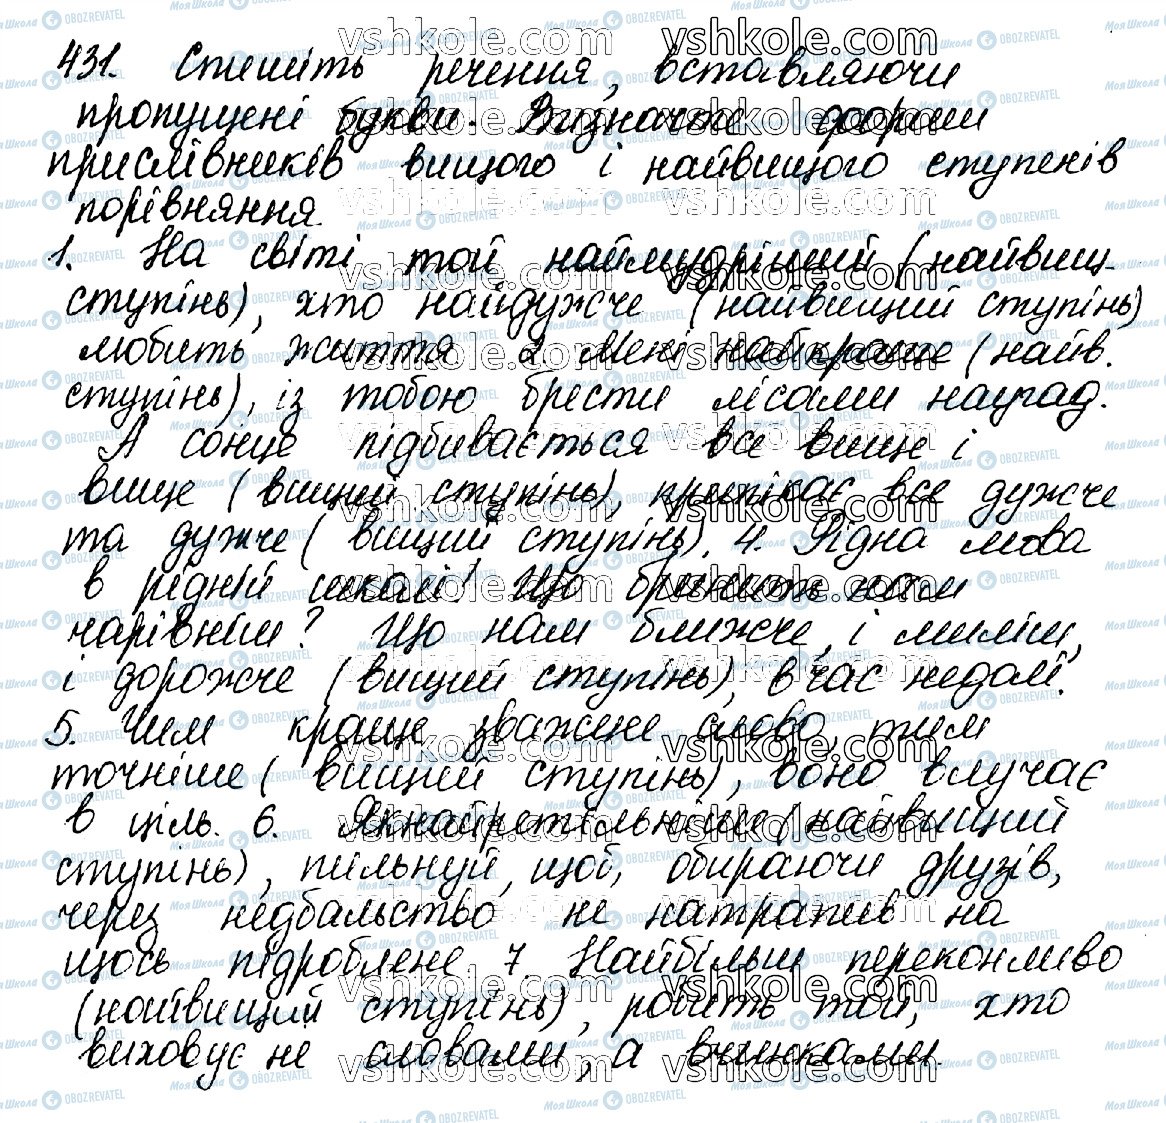 431. Спишіть речення, вставляючи
пропущені букви. Визначте форми
прислівників вищого і найвищого ступенів
порівняння.
1. На світі той наймудріший (найвищ.
ступінь), хто найдужче (найвищий ступінь)
любить життя 2. Мені найкраще (найв.
ступінь), із тобою брести лісами наугад.
А сонце підбивається все вище і
вище (вищий ступінь), припікає все дужче
та дужче (вищий ступінь). 4. Рідна мова
в рідній школі! Що бринить нам
чарівніш? Що нам ближче, і миліш,
і дорожче (вищий ступінь), в час недолі?
5. Чим краще зважене слово, тим
точніше (вищий ступінь), воно влучає
в ціль. 6. Якнайретельніше (найвищий
ступінь), пильнуй, щоб, обираючи друзів,
через недбальство не натрапив на
щось підроблене 7. Найбільш переконливо
(найвищий ступінь), робить той, хто
виховує не словами, а вчинками.